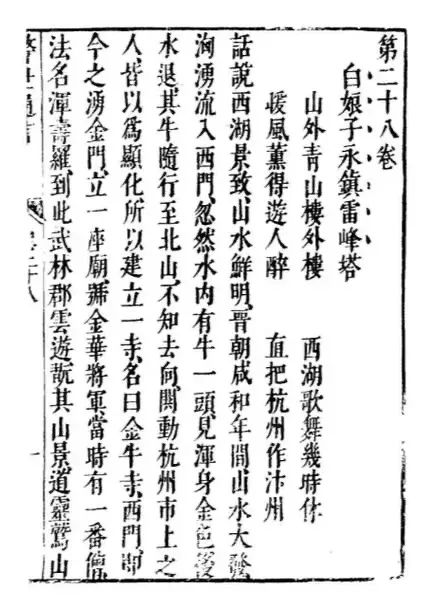 第二十八卷
白娘子永鎮雷峰塔
山外青山樓外樓　西湖歌舞幾時休
暖風薰得遊人醉　直把杭州作汴州
話說西湖景致、山水鮮明、晉朝咸和年間、山水大發、
洶湧流入西門、忽然水內有牛一頭、見渾身金色、後
水退、其牛隨行至北山、不知去向、鬨動杭州市上之
人、皆以爲顯化、所以建立一寺、名曰金牛寺、西門、即
今之湧金門、立一座廟、號金華將軍、當時有一番僧、
法名渾壽羅、到此武林郡雲遊、翫其山景、道靈鷲山
二十八
一